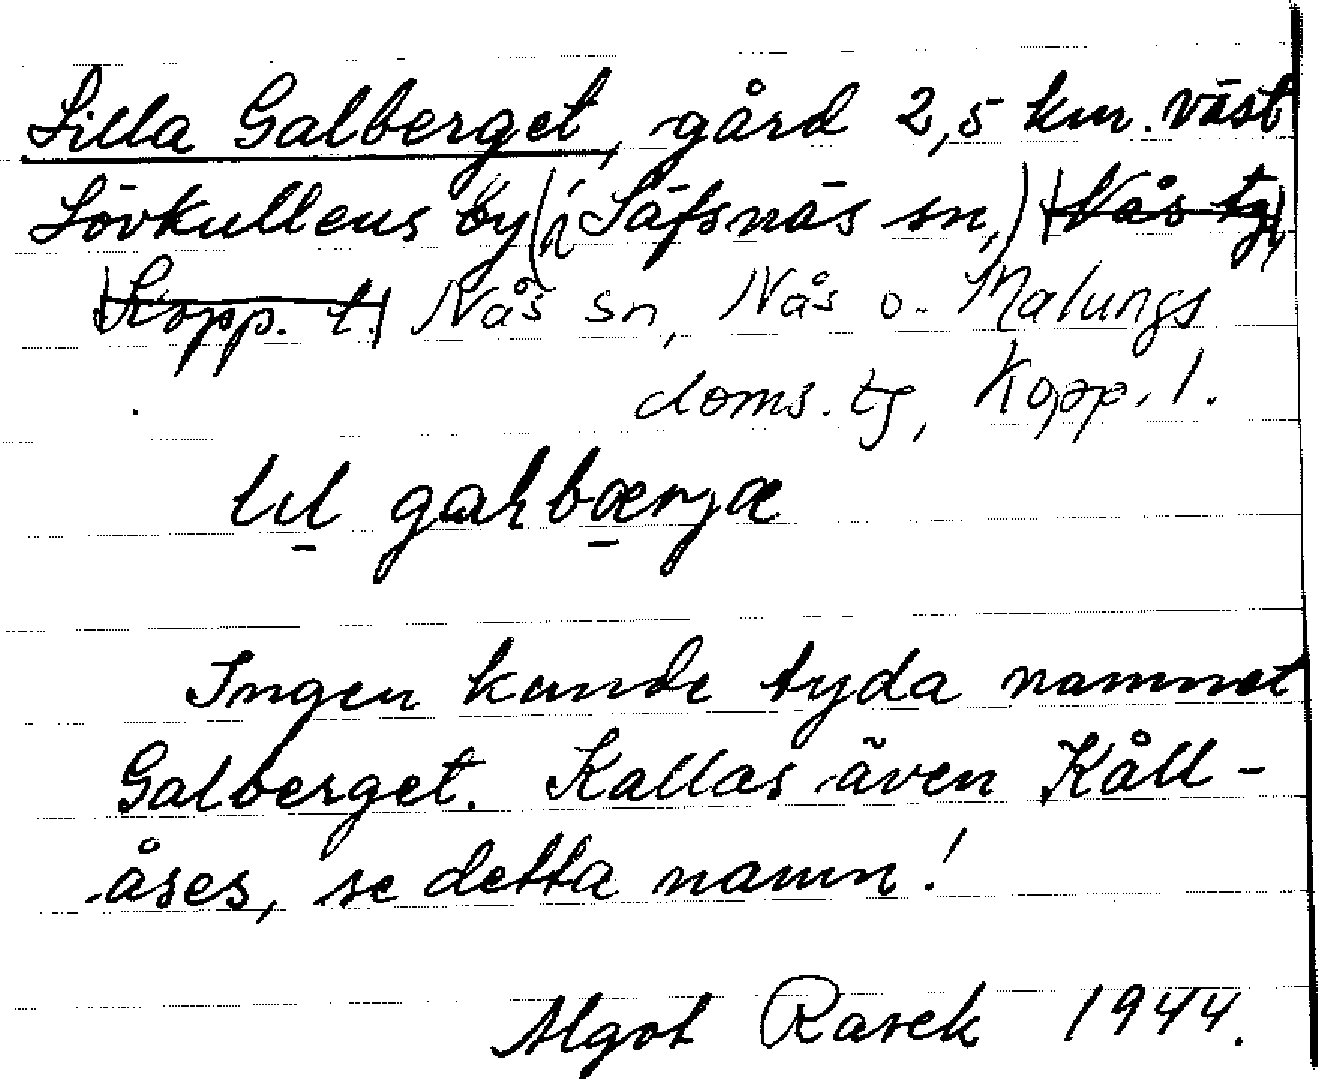 Lilla Galberget, gård 2,5 km. väst
Lövkullens by (i Säfsnäs sn,) Nås tg,
Kopp. l. Nås sn, Nås o. Malungs
doms. tg, Kopp. l.
Ingen kunde tyda namnet
Galberget. Kallas även Kåll-
åses, se detta namn!
Algot Rasek 1944.